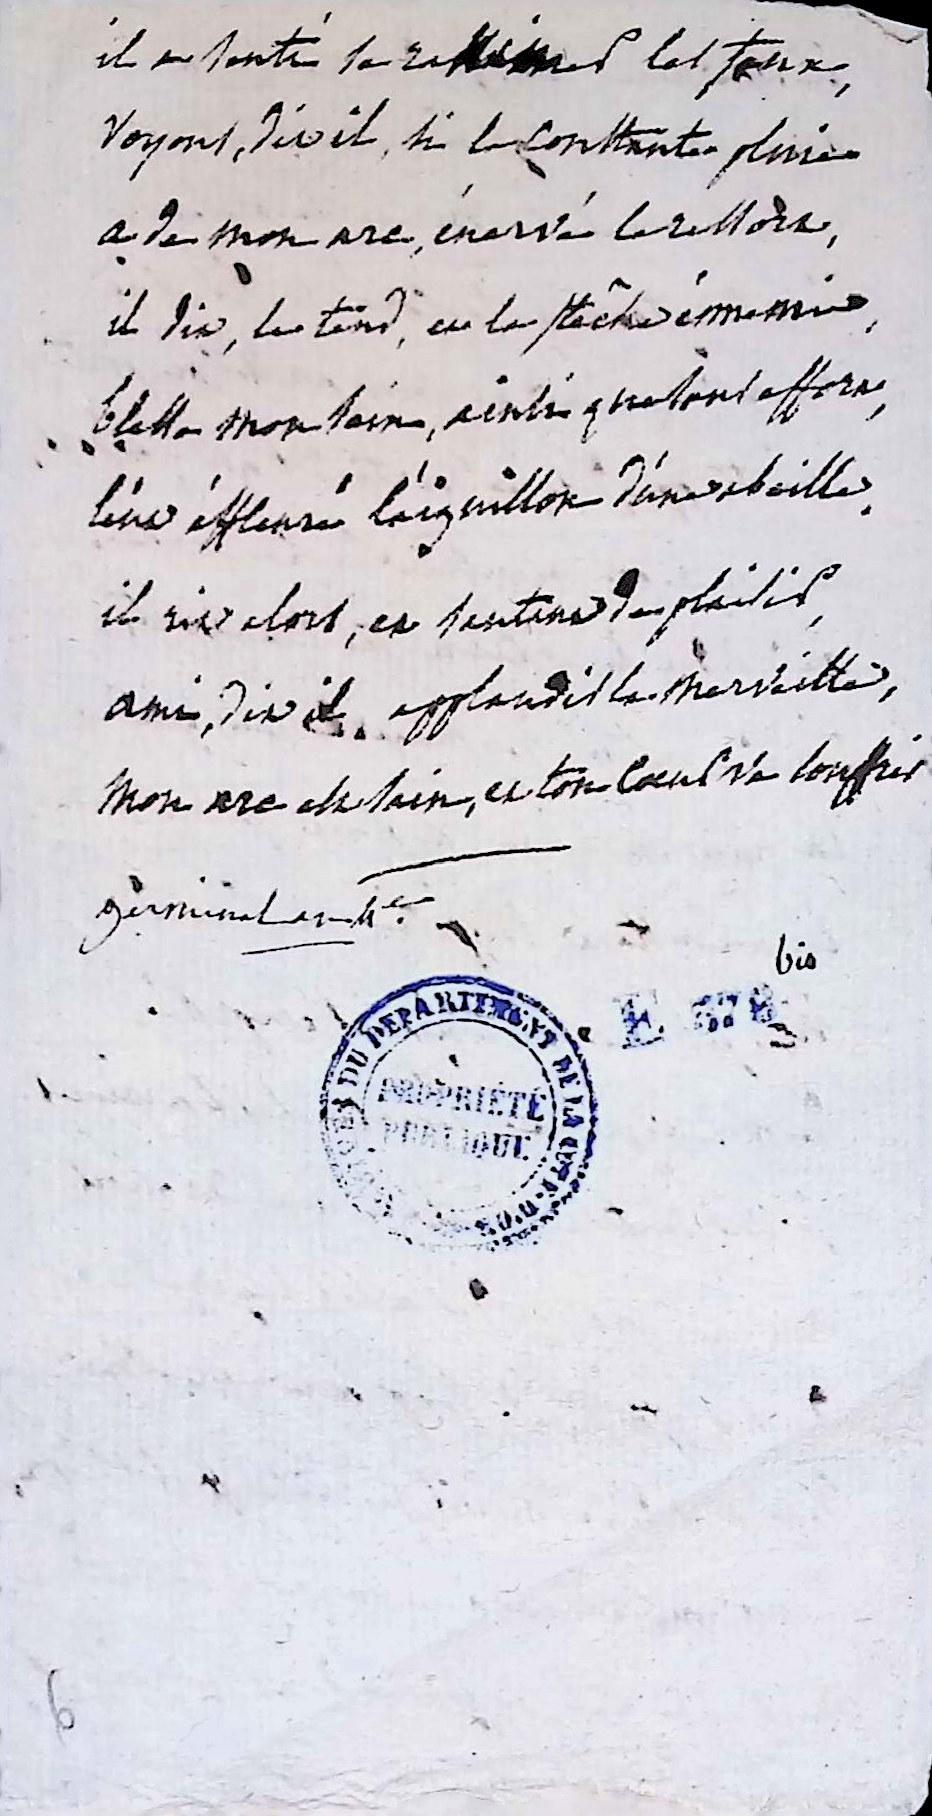 il a senti se rallumer ses feux,
voyons, dit il, si la constante pluie
a de mon arc, énervé le ressort,
il dit, le tend, et la flêche énnemie,
blesse mon sein, ainsi que sans effort,
l'eut éffleuré l'aiguillon d'une abeille.
il rit alors, et sautant de plaisir,
ami, dit il applaudis la merveille,
mon arc est sain, et ton coeur va souffrir
germinal an 4e.
bis
E 378
DU DEPARTEMENT DE LA
PROPRIÉTÉ
PUBLIQUE
6